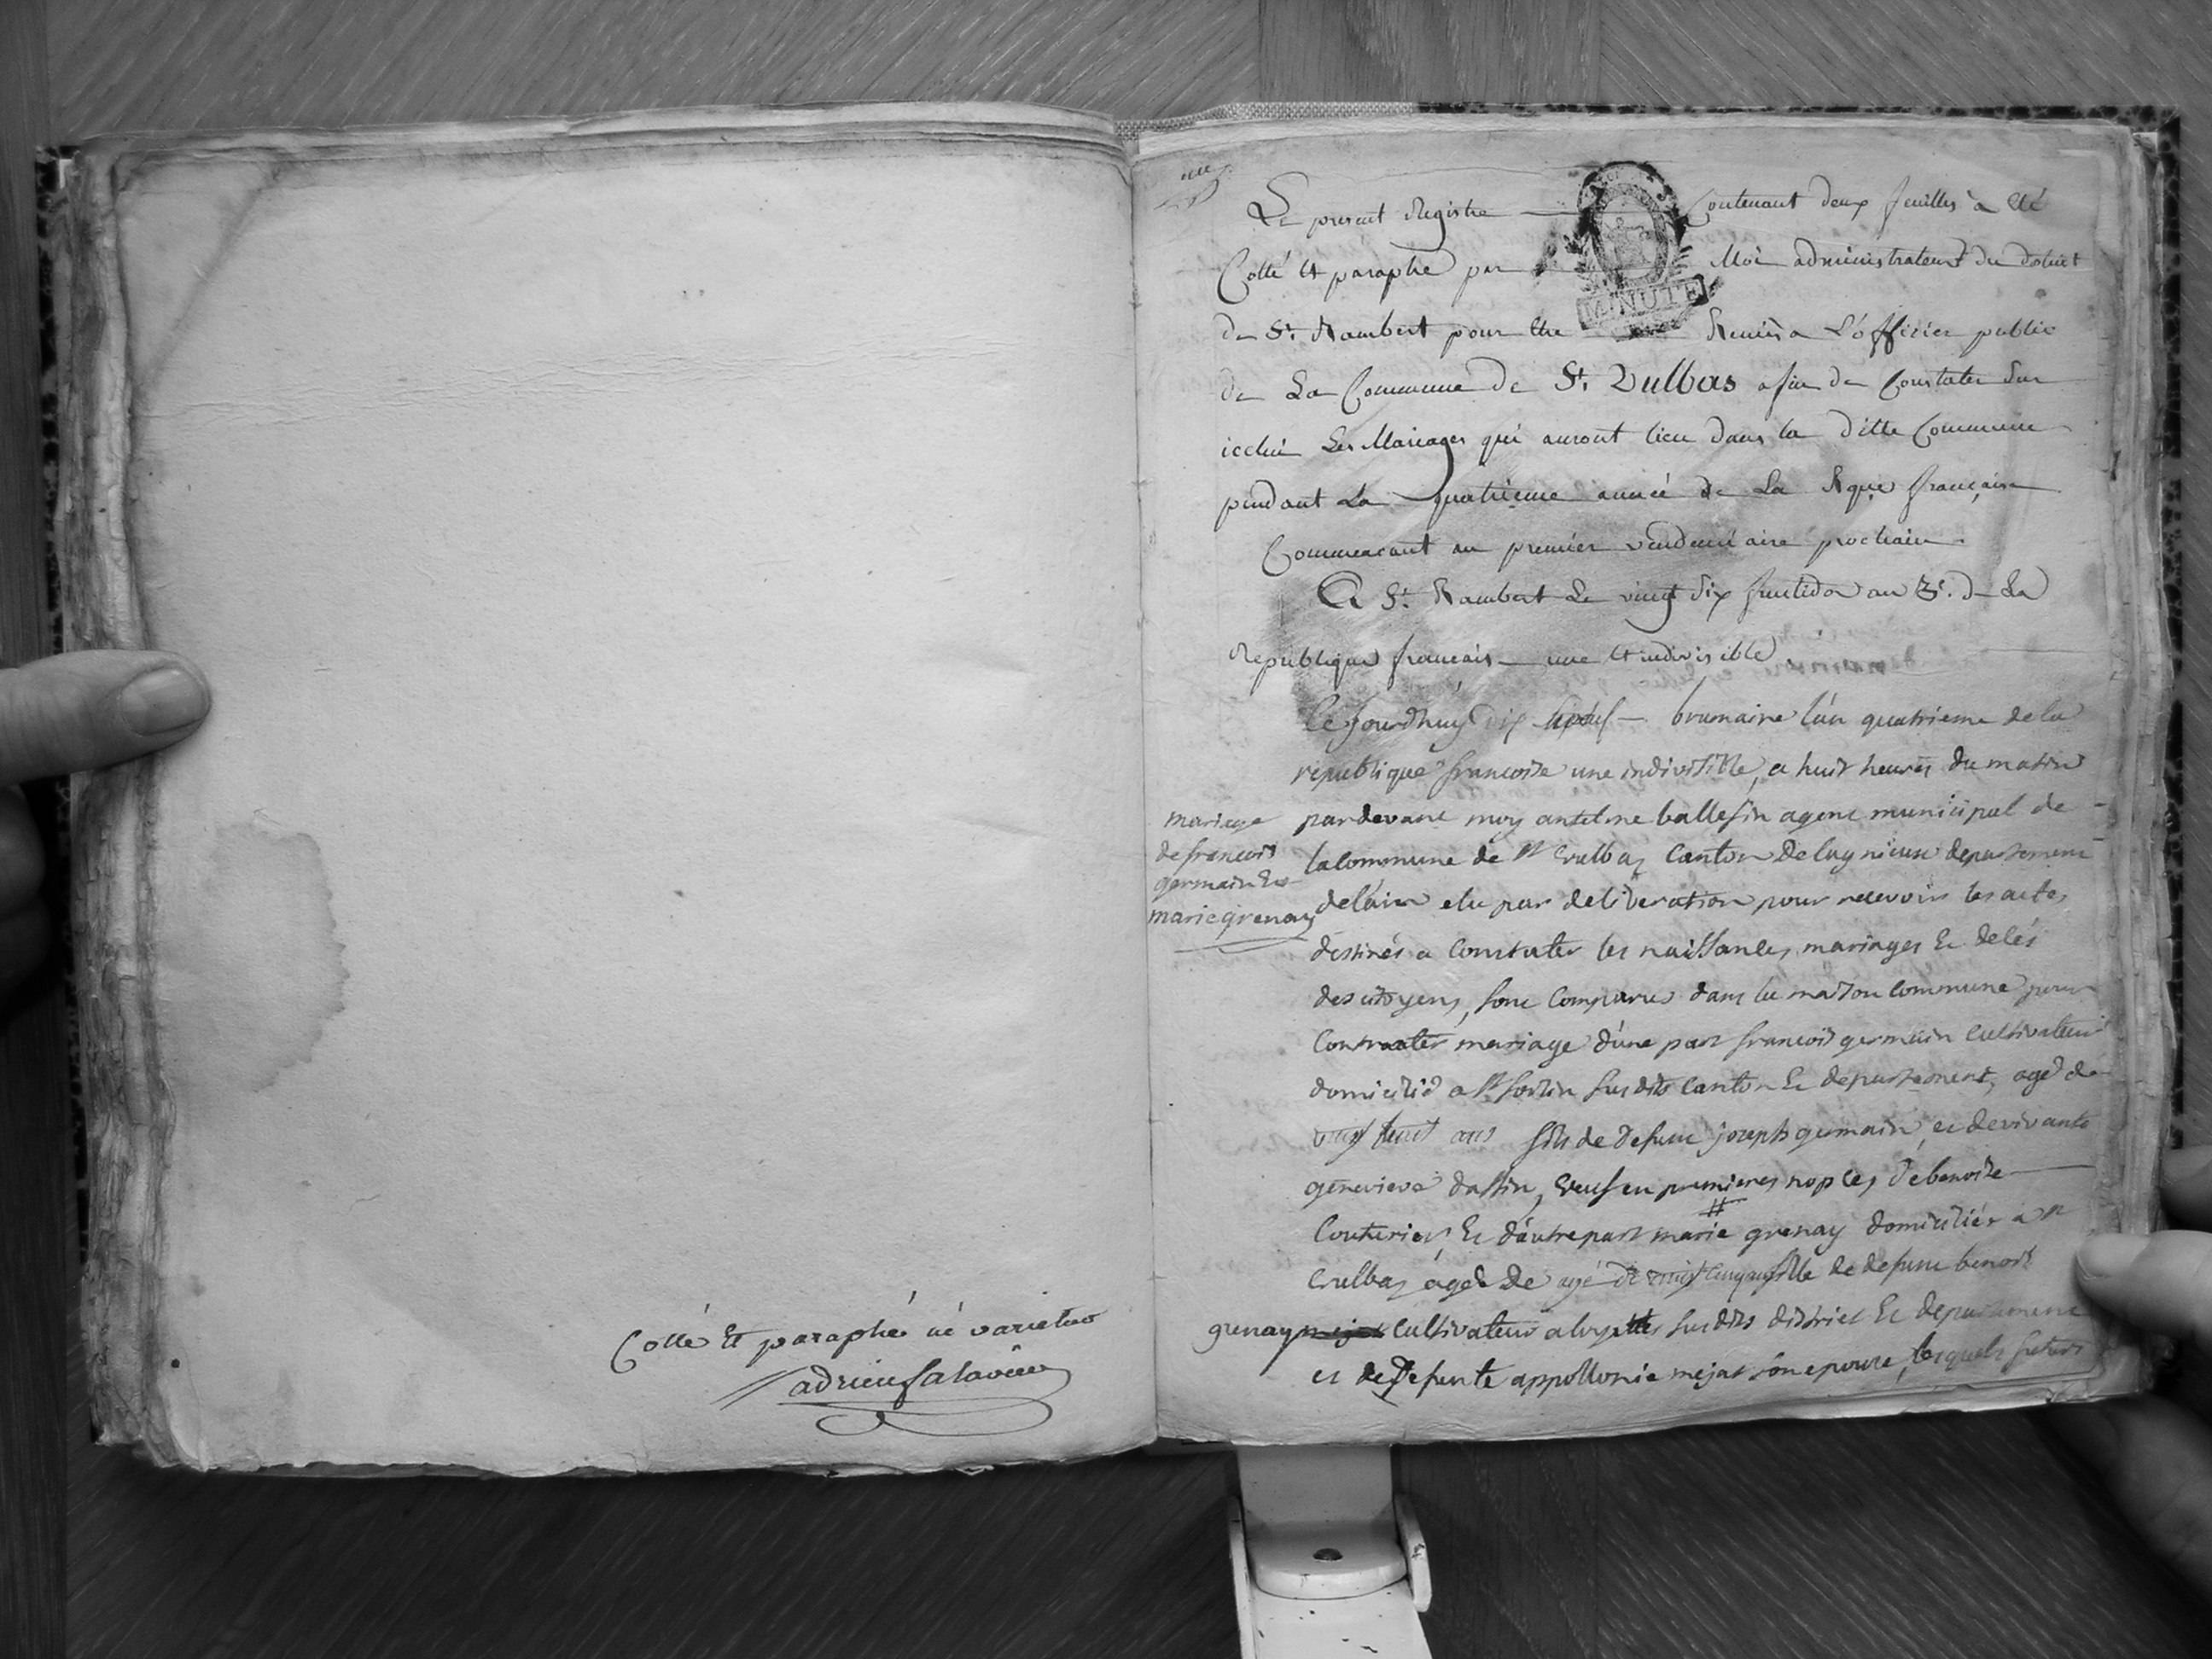 Cotté et paraphé ne varietur
adrien Salavin
Le present Registre Contenant deux feuilles a été
Cotté et paraphé par Moi administrateur du district
de St. Rambert pour être Remis a L'officier public
de La Commune de St. Vulbas afin de Constater Sur
icelui Les Mariages qui auront lieu dans la ditte Commune
pendant La quatrieme année de La Rque française
Commencant au premier vendemiaire prochain
A St. Rambert Le vingt dix fructidor an 3e. de La
Republique francaise une et indivisible
MINUTE
Ce jourdhuy dix brumaire l'an quatrieme de la
republique francoise une indivisible, a huit heures du matin
pardevant moy antelme ballefin agent municipal de
la commune de st vulbas Canton de lagnieux departement
delain elu par deliberation pour recevoir les actes
destinés a Constater les naissances, mariages et deces
des citoyens, sont Comparus dans la maison commune pour
Contracter mariage d'une part francois germain cultivateur
domicilié a st sorlin susdits canton et departement, agé de
vingt huit ans fils de defunt joseph germain, et de vivante
genevieve dassin, veuf en premieres nopces de benoite
Couturier, et d'autre part marie grenay domiciliée a st
vulbas agée de agé de vingt cinq ans fille de defunt benoit
grenay cultivateur a loyettes susdits district et departement
et de defunte appollonie mejat son epouse, lesquels futurs
mariage
de francois
germain et
marie grenay